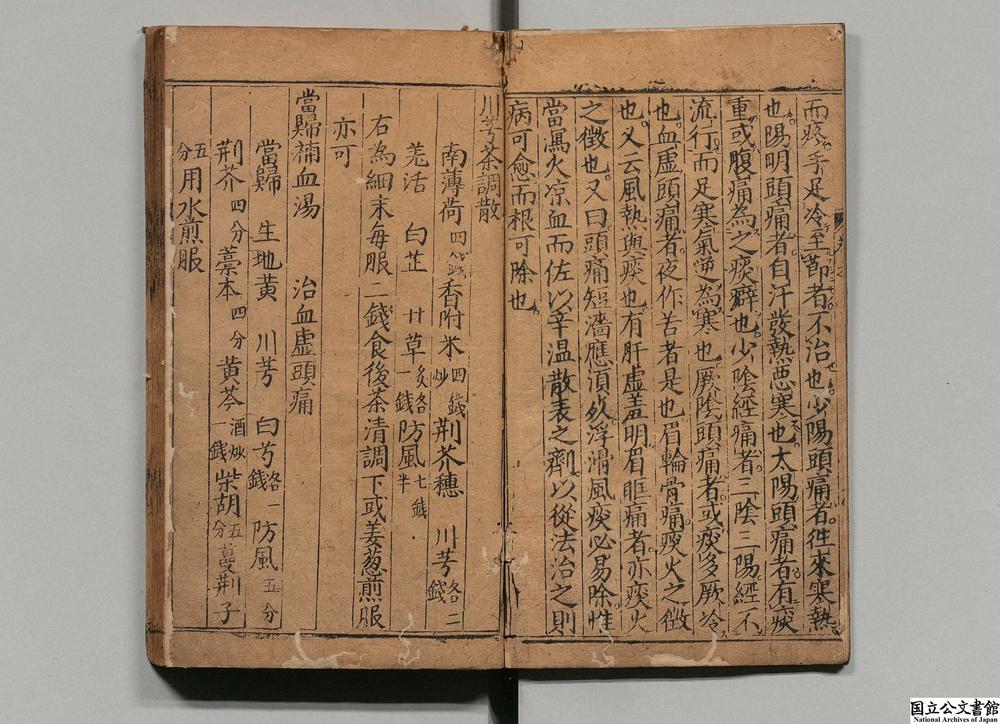 而疼手足冷至節者不治也少陽頭痛者徃來寒熱
也陽明頭痛者自汗發熱悪寒也太陽頭痛者有痰
重或腹痛為之痰癖也少陰經痛者三陰三陽經不
流行而足寒氣逆為寒也厥陰頭痛者或痰多厥冷
也血虚頭痛者夜作苦者是也眉輪骨痛痰火之徴
也又云風熱與痰也有肝虚羞明眉眶痛者亦痰火
之徴也又曰頭痛短濇應湏死浮滑風痰必易除惟
當瀉火凉血而佐以辛温散表之劑以從法治之則
病可愈而根可除也
川芎茶調散
南薄荷四錢香附米四錢炒荆芥穗 川芎各二錢
羌活 白芷 甘草炙各一錢防風七錢半
右為細末每服二錢食後茶清調下或姜葱煎服
亦可
當歸補血湯 治血虚頭痛
當歸 生地黄 川芎 白芍各一錢防風五分
荆芥四分藁本四分黄芩酒炒一錢柴胡五分蔓荆子
五分用水煎服
国立公文書館
National Archives of Japan